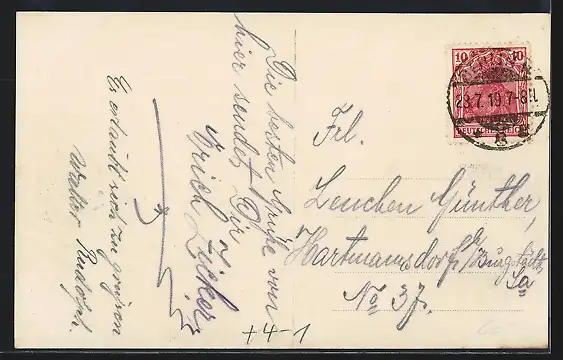 Die besten Grüße von
hier sendet Dir
Erich Zücker
Es erlaubt sich zu grüßen
Walter Rudolph.
Frl.
Lenchen Günther,
Hartmannsdorf b/Burgstädt
Sa
No 37.
10 10
DEUTSCHES REICH
23.7.19.7-8N.
+4-1